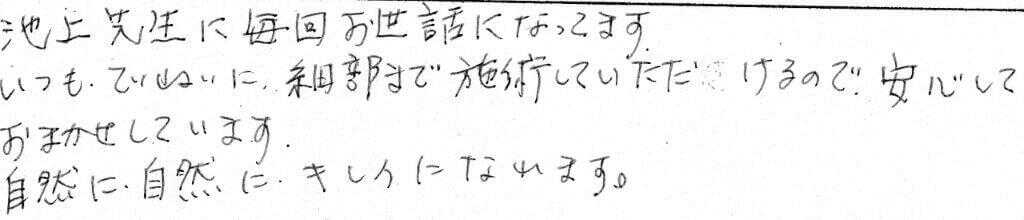 池上先生に毎回お世話になってます.
いつも.ていねいに.細部まで施術していただけるので.安心して
おまかせしています.
自然に.自然に.キレイになれます。